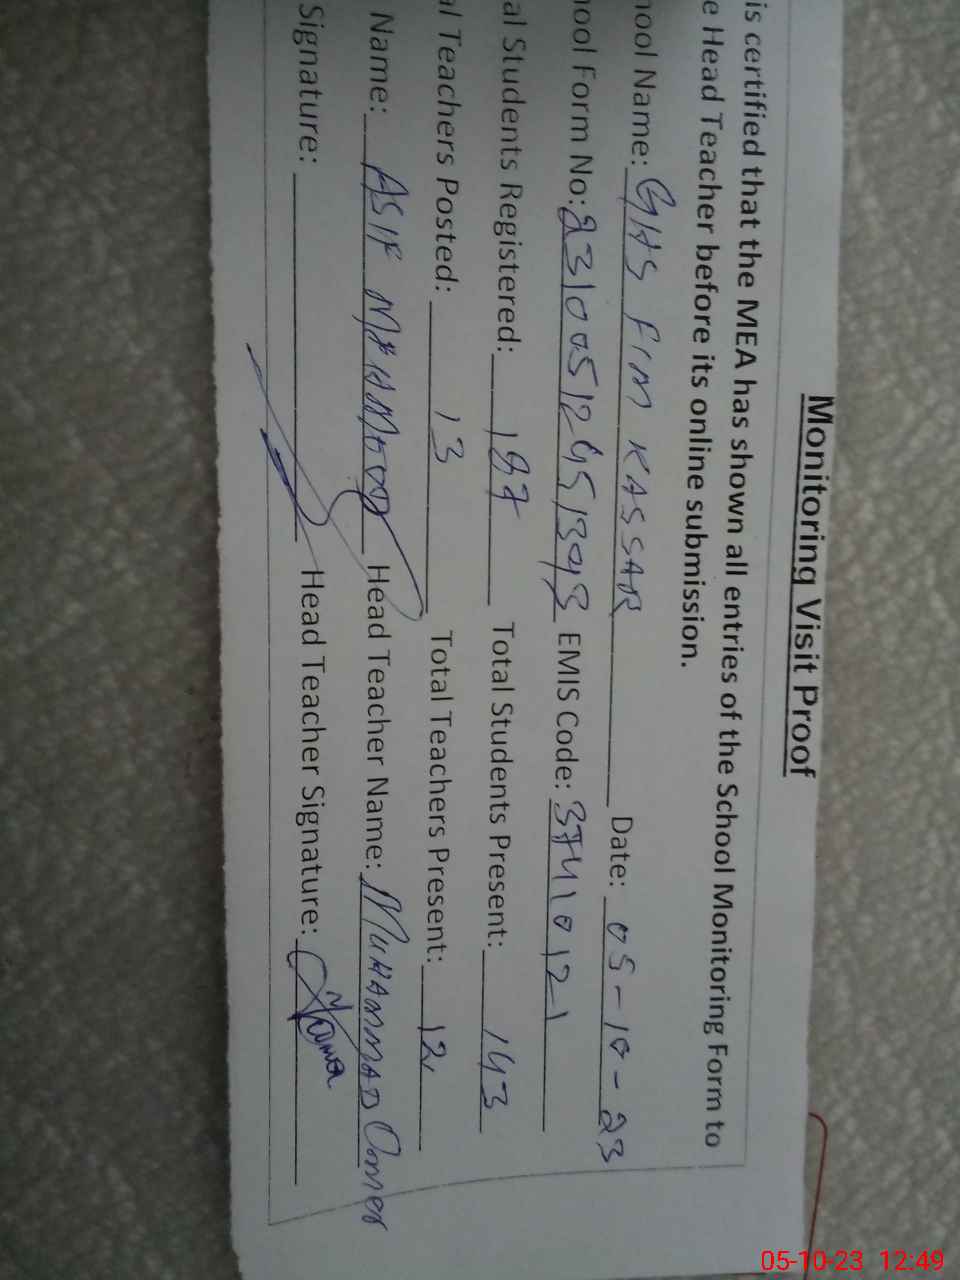 Monitoring Visit Proof
is certified that the MEA has shown all entries of the School Monitoring Form to
e Head Teacher before its online submission.
hool Name: GHS FIM KASSAR Date: 05-10-23
hool Form No: EMIS Code: 37410121
al Students Registered: 187 Total Students Present: 143
al Teachers Posted: 13 Total Teachers Present: 12
Name: ASIF MAHMOOD Head Teacher Name: MUHAMMAD Omer
Signature: Head Teacher Signature:
05-10-23 12:49